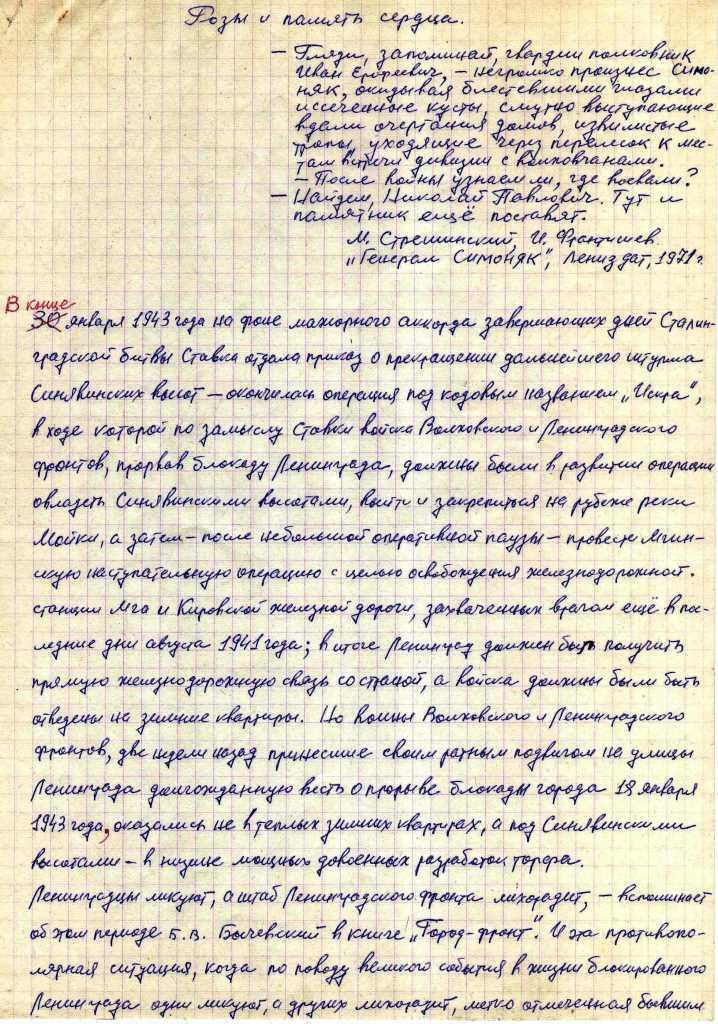 Розы и память сердца.
— Гляди, запоминай, гвардии полковник
Иван Ерофеевич, — негромко произнес Симо-
няк, окидывая блестевшими глазами
иссеченные кусты, смутно выступающие
вдали очертания домов, извилистые
тропы, уходящие через перелесок к мес-
там встречи дивизии с волховчанами.
— После войны узнаем ли, где воевали?
— Найдем, Николай Павлович. Тут и
памятник ещё поставят.
М. Стрешинский, И. Франтишев.
„Генерал Симоняк", Лениздат, 1971 г.
В конце
30 января 1943 года на фоне мажорного аккорда завершающих дней Сталин-
градской битвы Ставка отдала приказ о прекращении дальнейшего штурма
Синявинских высот — окончилась операция под кодовым названием „Искра",
в ходе которой по замыслу Ставки войска Волховского и Ленинградского
фронтов, прорвав блокаду Ленинграда, должны были в развитии операции
овладеть Синявинскими высотами, выйти и закрепиться на рубеже реки
Мойки, а затем – после небольшой оперативной паузы – провести Мгин-
скую наступательную операцию с целью освобождения железнодорожной.
станции Мга и Кировской железной дороги, захваченных врагом ещё в пос-
ледние дни августа 1941 года; в итоге Ленинград должен быть получить
прямую железнодорожную связь со страной, а войска должны были быть
отведены на зимние квартиры. Но воины Волховского и Ленинградского
фронтов, две недели назад принесшие своим ратным подвигом на улицы
Ленинграда долгожданную весть о прорыве блокады города 18 января
1943 года, оказались не в теплых зимних квартирах, а под Синявинскими
высотами – в низине мощных довоенных разработок торфа.
Ленинградцы ликуют, а штаб Ленинградского фронта лихорадит, – вспоминает
об этом периоде Б. В. Бычевский в книге „Город-фронт". И эта противопо-
лярная ситуация, когда по поводу великого события в жизни блокированного
Ленинграда одни ликуют, а других лихорадит, метко отмеченная бывшим